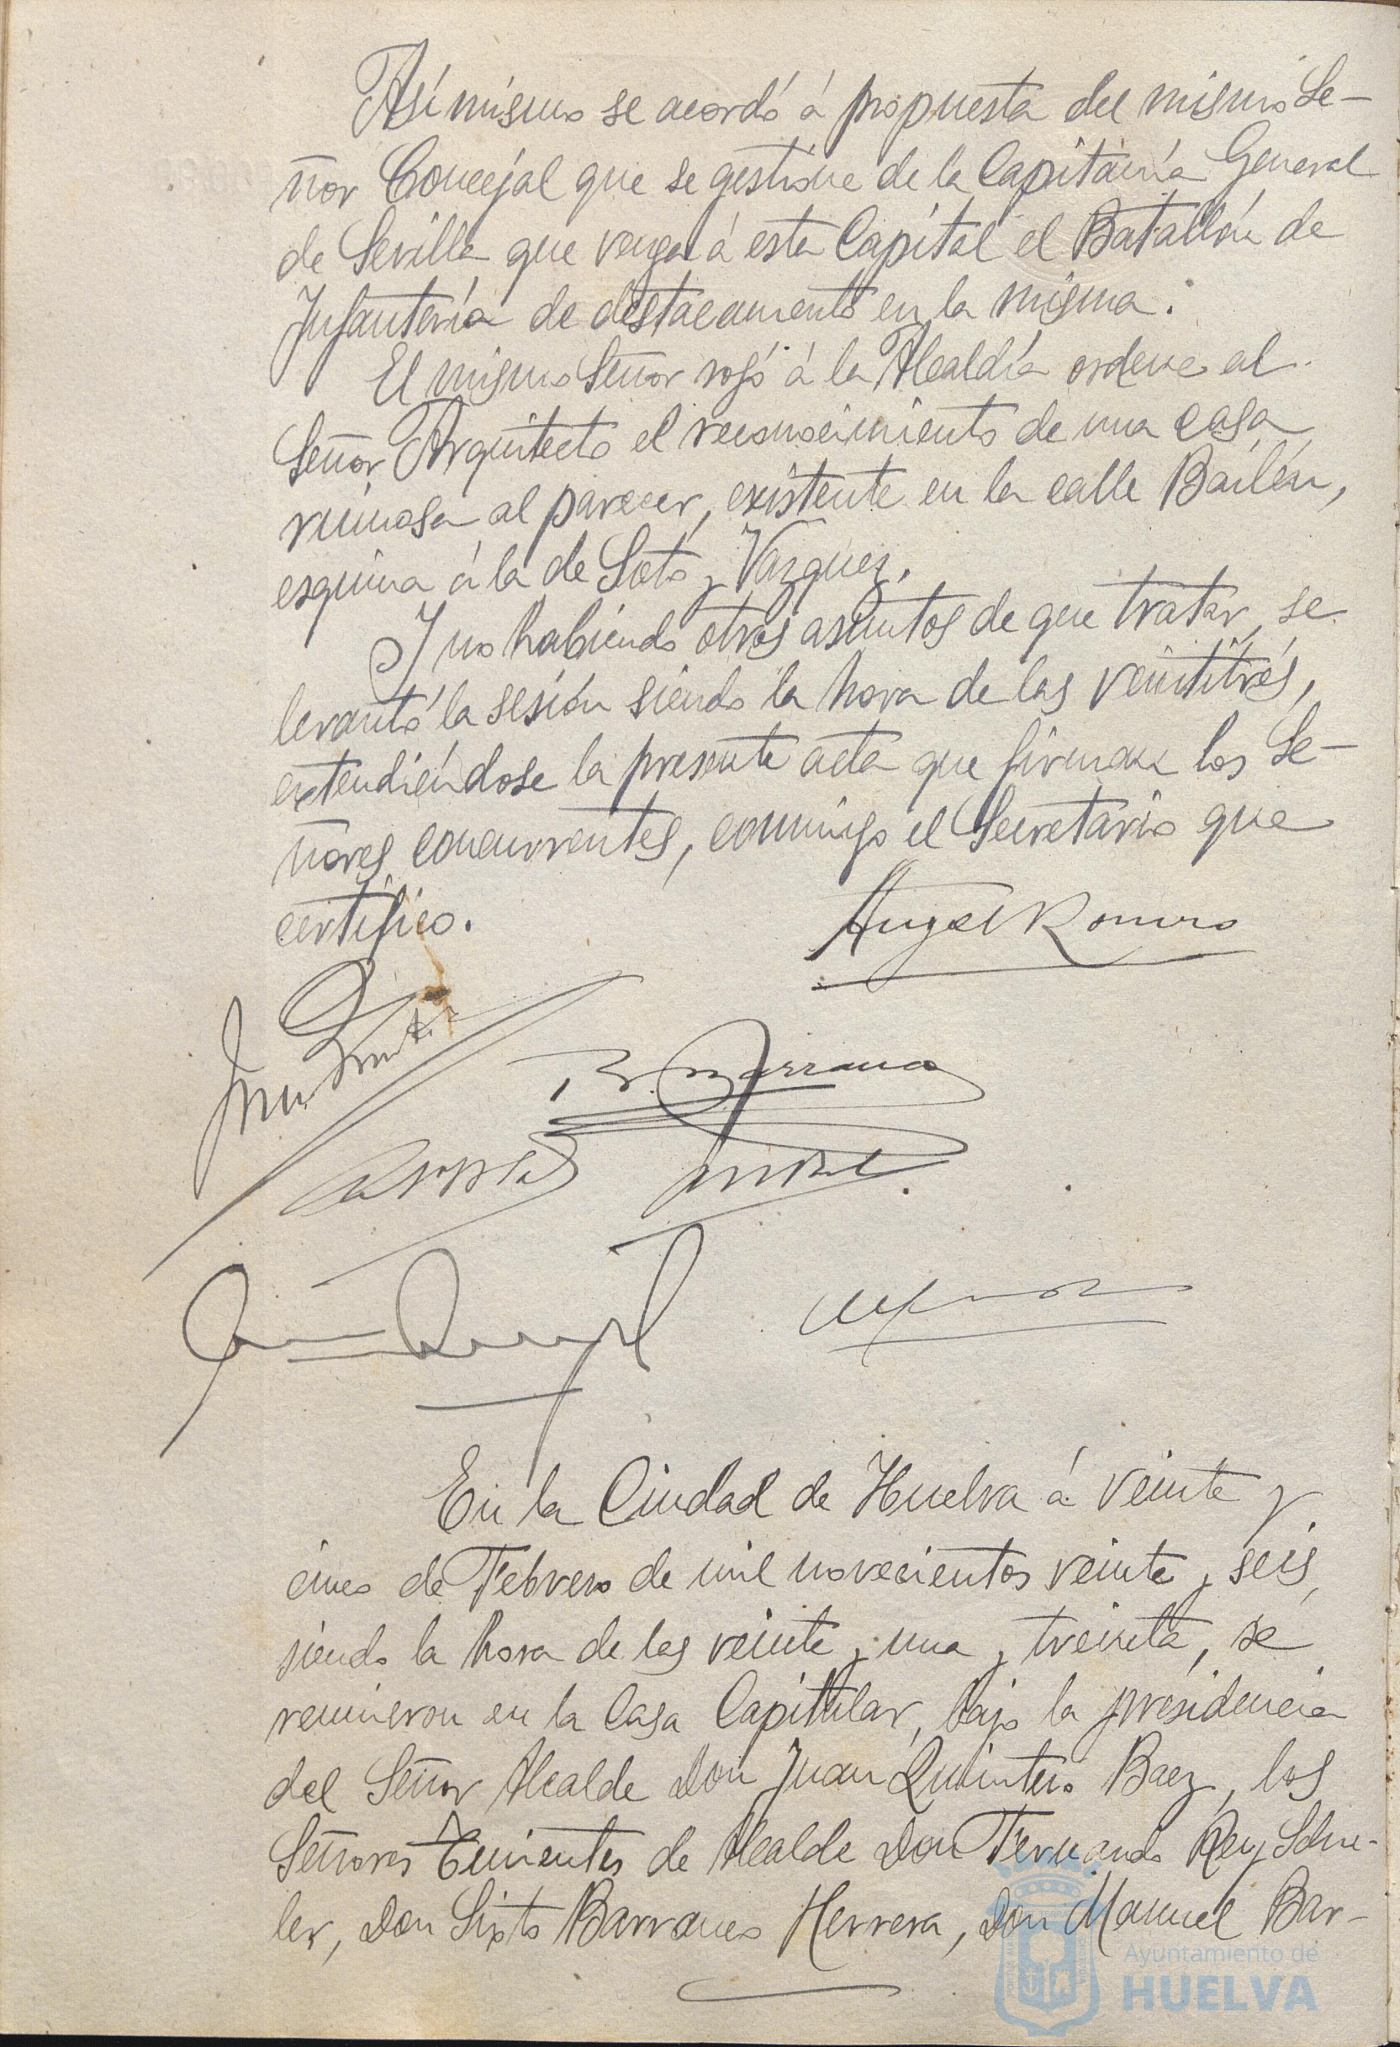 Así mismo se acordó á propuesta del mismo Se-
ñor Concejal que se gestione de la Capitanía General
de Sevilla que venga á esta Capital el Batallón de
Infantería de destacamento en la misma.
El mismo Señor rogó á la Alcaldía ordene al
Señor Arquitecto el reconocimiento de una casa
ruinosa al parecer, existente en la calle Bailén,
esquina á la de Soto y Vazquez.
Y no habiendo otros asuntos de que tratar, se
levantó la sesión siendo la hora de las veintitrés,
extendiéndose la presente acta que firman los Se-
ñores concurrentes, conmigo el Secretario que
certifico.
Angel Romero
Barranco
En la Ciudad de Huelva á veinte y
cinco de Febrero de mil novecientos veinte y seis,
siendo la hora de las veinte y una y treinta, se
reunieron en la Casa Capitular, bajo la presidencia
del Señor Alcalde Don Juan Quintero Baez, los
Señores Tenientes de Alcalde Don Fernando Rey Schue-
ler, Don Sixto Barranco Herrera, Don Manuel Bar-
Ayuntamiento de
HUELVA